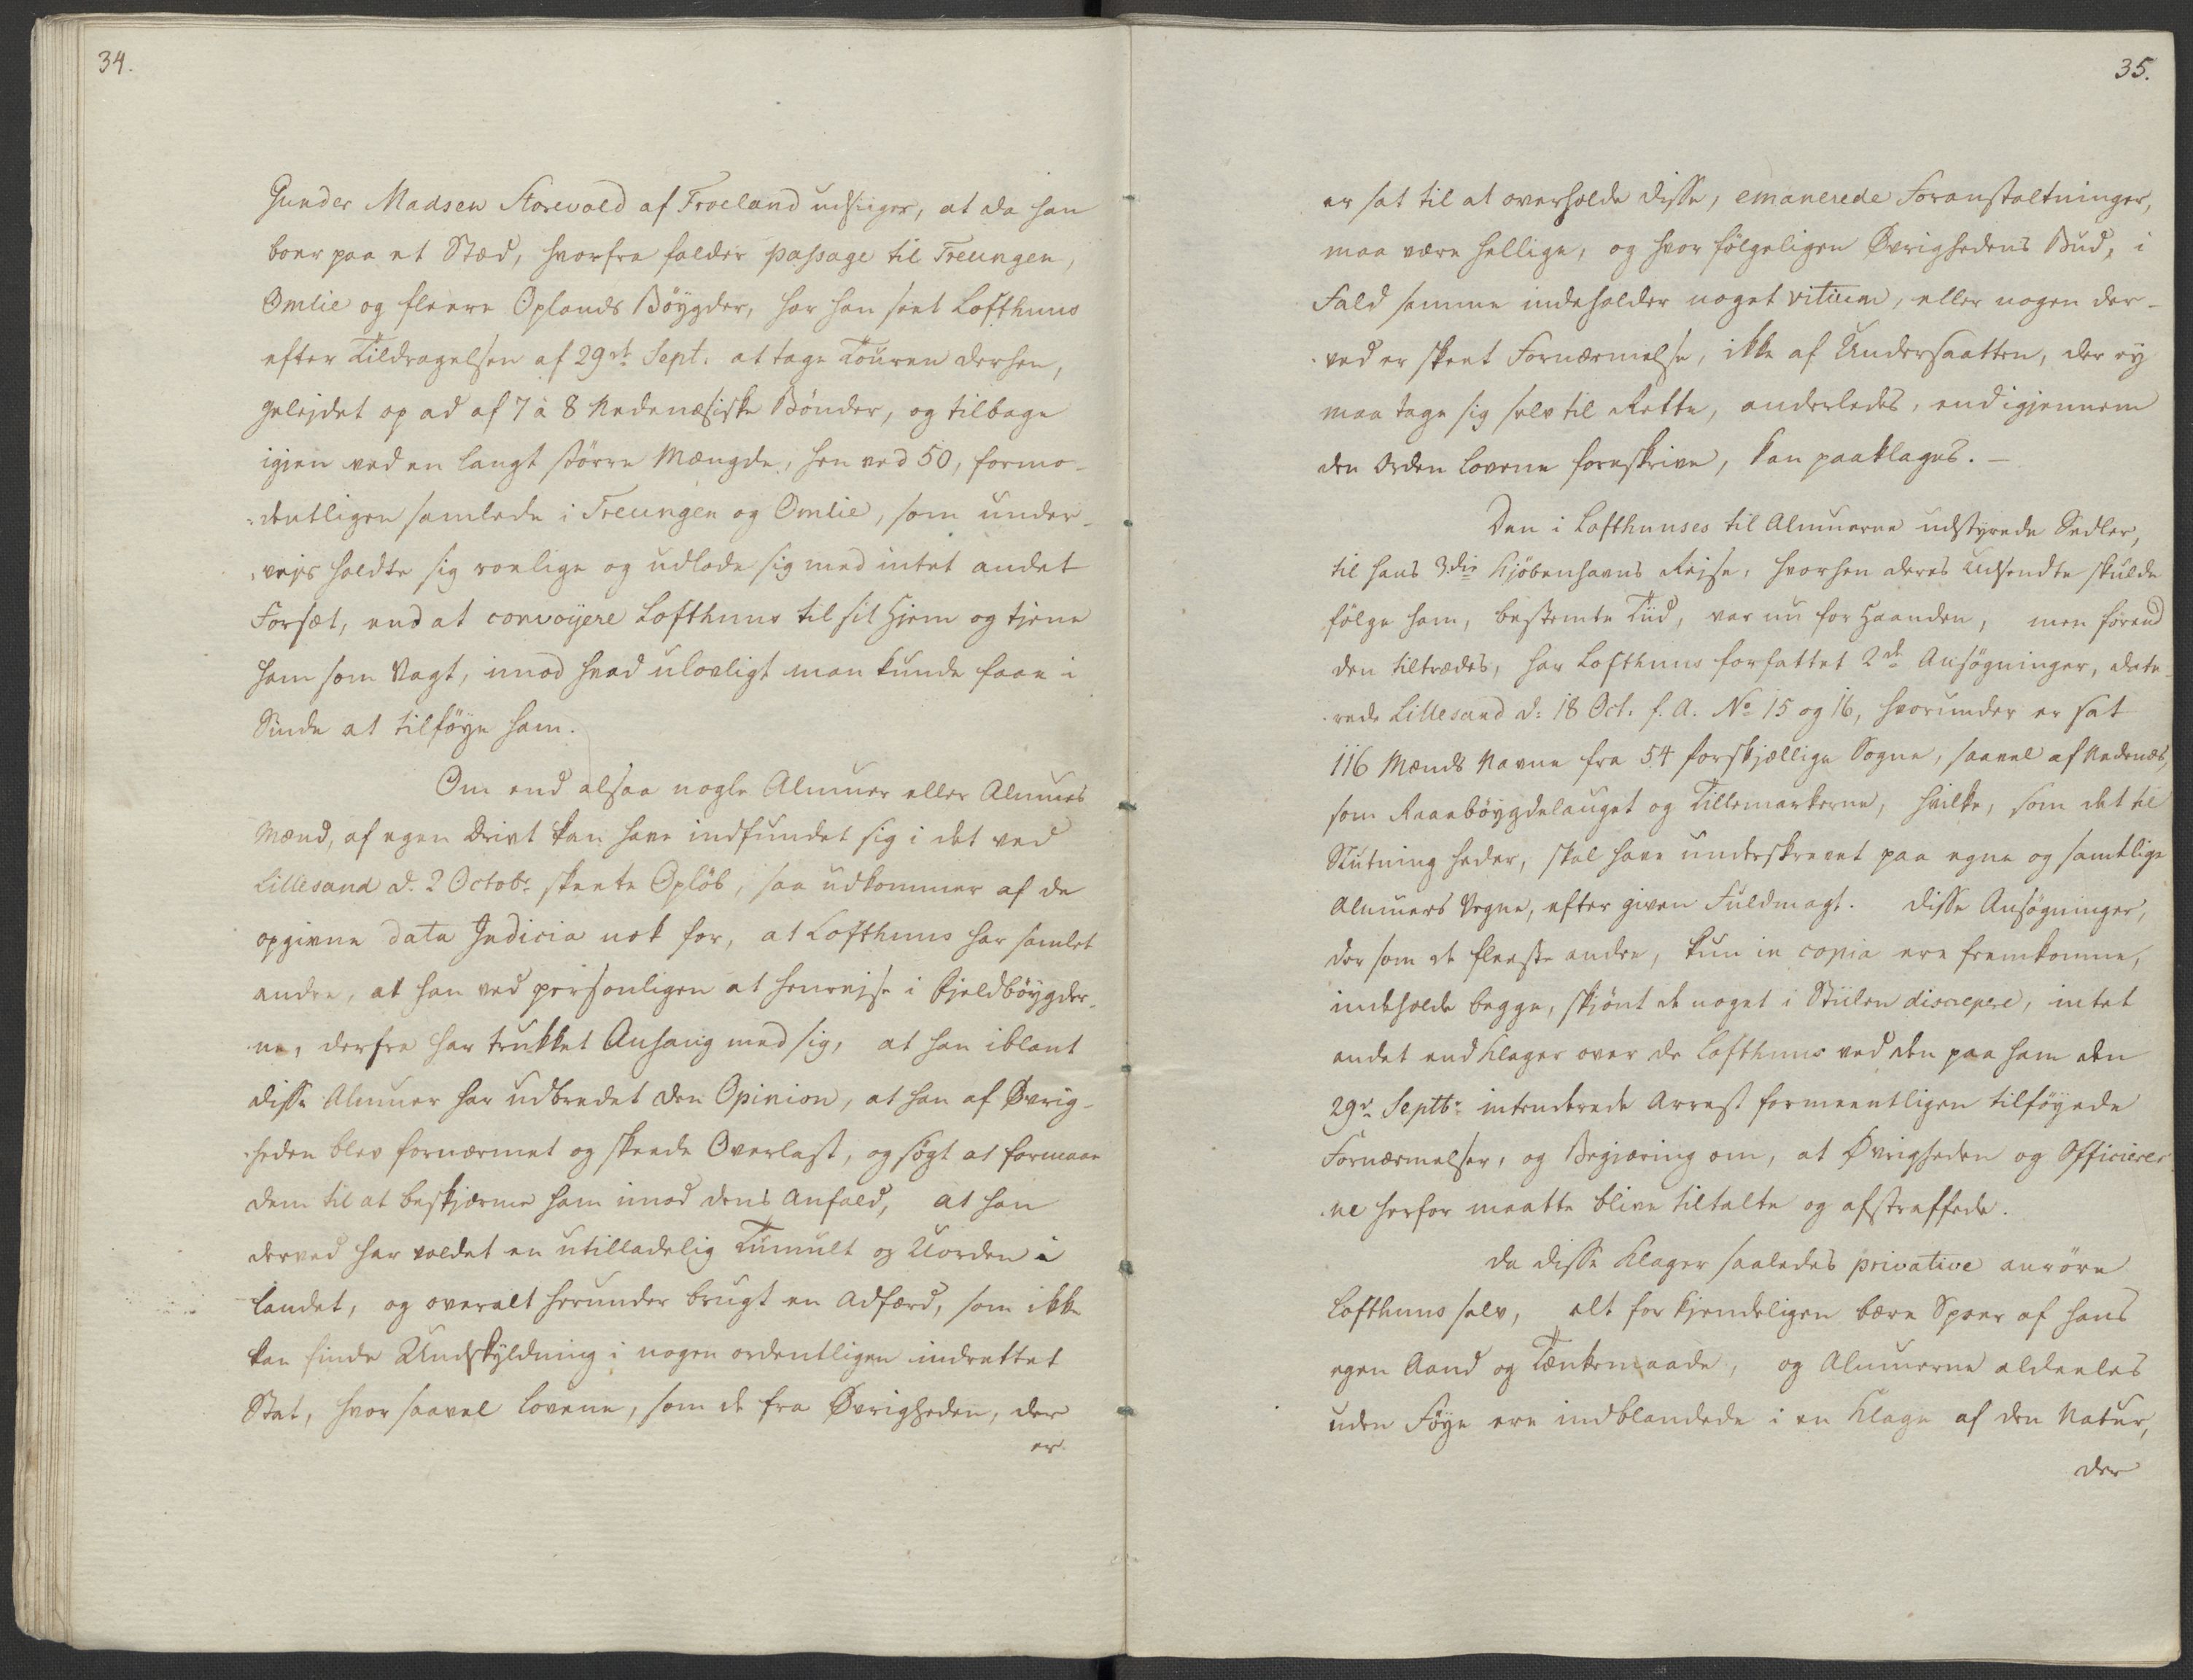 34.
Gunder Madsen Storevold af Froeland udsiiger, at da han
boer paa et Stæd, hvorfra falder passage til Treungen,
Omlie og fleere Oplands Böygder, har han seet Lofthuus
efter Tildragelsen af 29de Sept. at tage Touren derhen,
geleidet op ad af 7 à 8 Nedenæsiske Bönder, og tilbage
igjen ved en langt större Mængde, hen ved 50, formo-
dentligen samlede i Treungen og Omlie, som under-
vejs holdte sig roelige og udlode sig med intet andet
Forsæt, end at convoyere Lofthuus til sit Hjem og tjene
ham som Vagt, imod hvad ulovligt man kunde faae i
Sinde at tilföye ham.
Om end altsaa nogle Almuer eller Almues
Mænd, af egen Drivt kan have indfundet sig i det ved
Lillesand d. 2 Octobr. skeete Oplöb, saa udkommer af de
opgivne data Indicia nok for, at Lofthuus har samlet
andre, at han ved personligen at henrejse i Fjeldböygder-
ne, derfra har trukket Anhang med sig, at han iblant
disse Almuer har udbredet den Opinion, at han af Øvrig-
heden blev fornærmet og skeede Overlast, og sögt at formaae
dem til at beskjærme ham imod dens Anfald, at han
derved har voldet en utilladelig Tumult og Uorden i
Landet, og overalt herunder brugt en Adfærd, som ikke
kan finde Undskyldning i nogen ordentligen indrettet
Stat, hvor saavel Lovene, som de fra Øvrigheden, der
er
35.
er sat til at overholde disse, emanerede Foranstaltninger,
maa være hellige, og hvor fölgeligen Øvrighedens Bud, i
Fald samme indeholder noget vitium, eller nogen der-
ved er skeet Fornærmelse, ikke af Undersaatten, der ey
maa tage sig selv til Rette, anderledes, end igjennem
den Orden Lovene foreskrive, kan paaklages. —
Den i Lofthuuses til Almuerne udstyrede Sedler,
til hans 3die Kjöbenhavns Rejse, hvorhen deres Udsendte skulde
fölge ham, bestemte Tiid, var nu for Haanden, men förend
den tiltrædes, har Lofthuus forfattet 2de Ansögninger, date-
rede Lillesand d: 18 Oct. f. A. No 15 og 16, hvorunder er sat
116 Mænds Navne fra 54 forskjællige Sogne, saavel af Nedenæs,
som Raaböygdelauget og Tillemarkerne, hvilke, som det til
Slutning heder, skal have underskrevet paa egne og samtlige
Almuers Vegne, efter given Fuldmagt. Disse Ansögninger,
der som de fleeste andre, kun in copia ere fremkomne,
indeholde begge, skjönt de noget i Stiilen discrepere, intet
andet end Klager over de Lofthuus ved den paa ham den
29de Septbr. intenderede Arrest formeentligen tilföyede
Fornærmelser, og Begiæring om, at Øvrigheden og Officierer-
ne herfor maatte blive tiltalte og afstraffede.
Da disse Klager saaledes privative anröre
Lofthuus selv, alt for kjendeligen bære Spoer af hans
egen Aand og Tænkemaade, og Almuerne aldeeles
uden Föye ere indblandede i en Klage af den Natur,
der